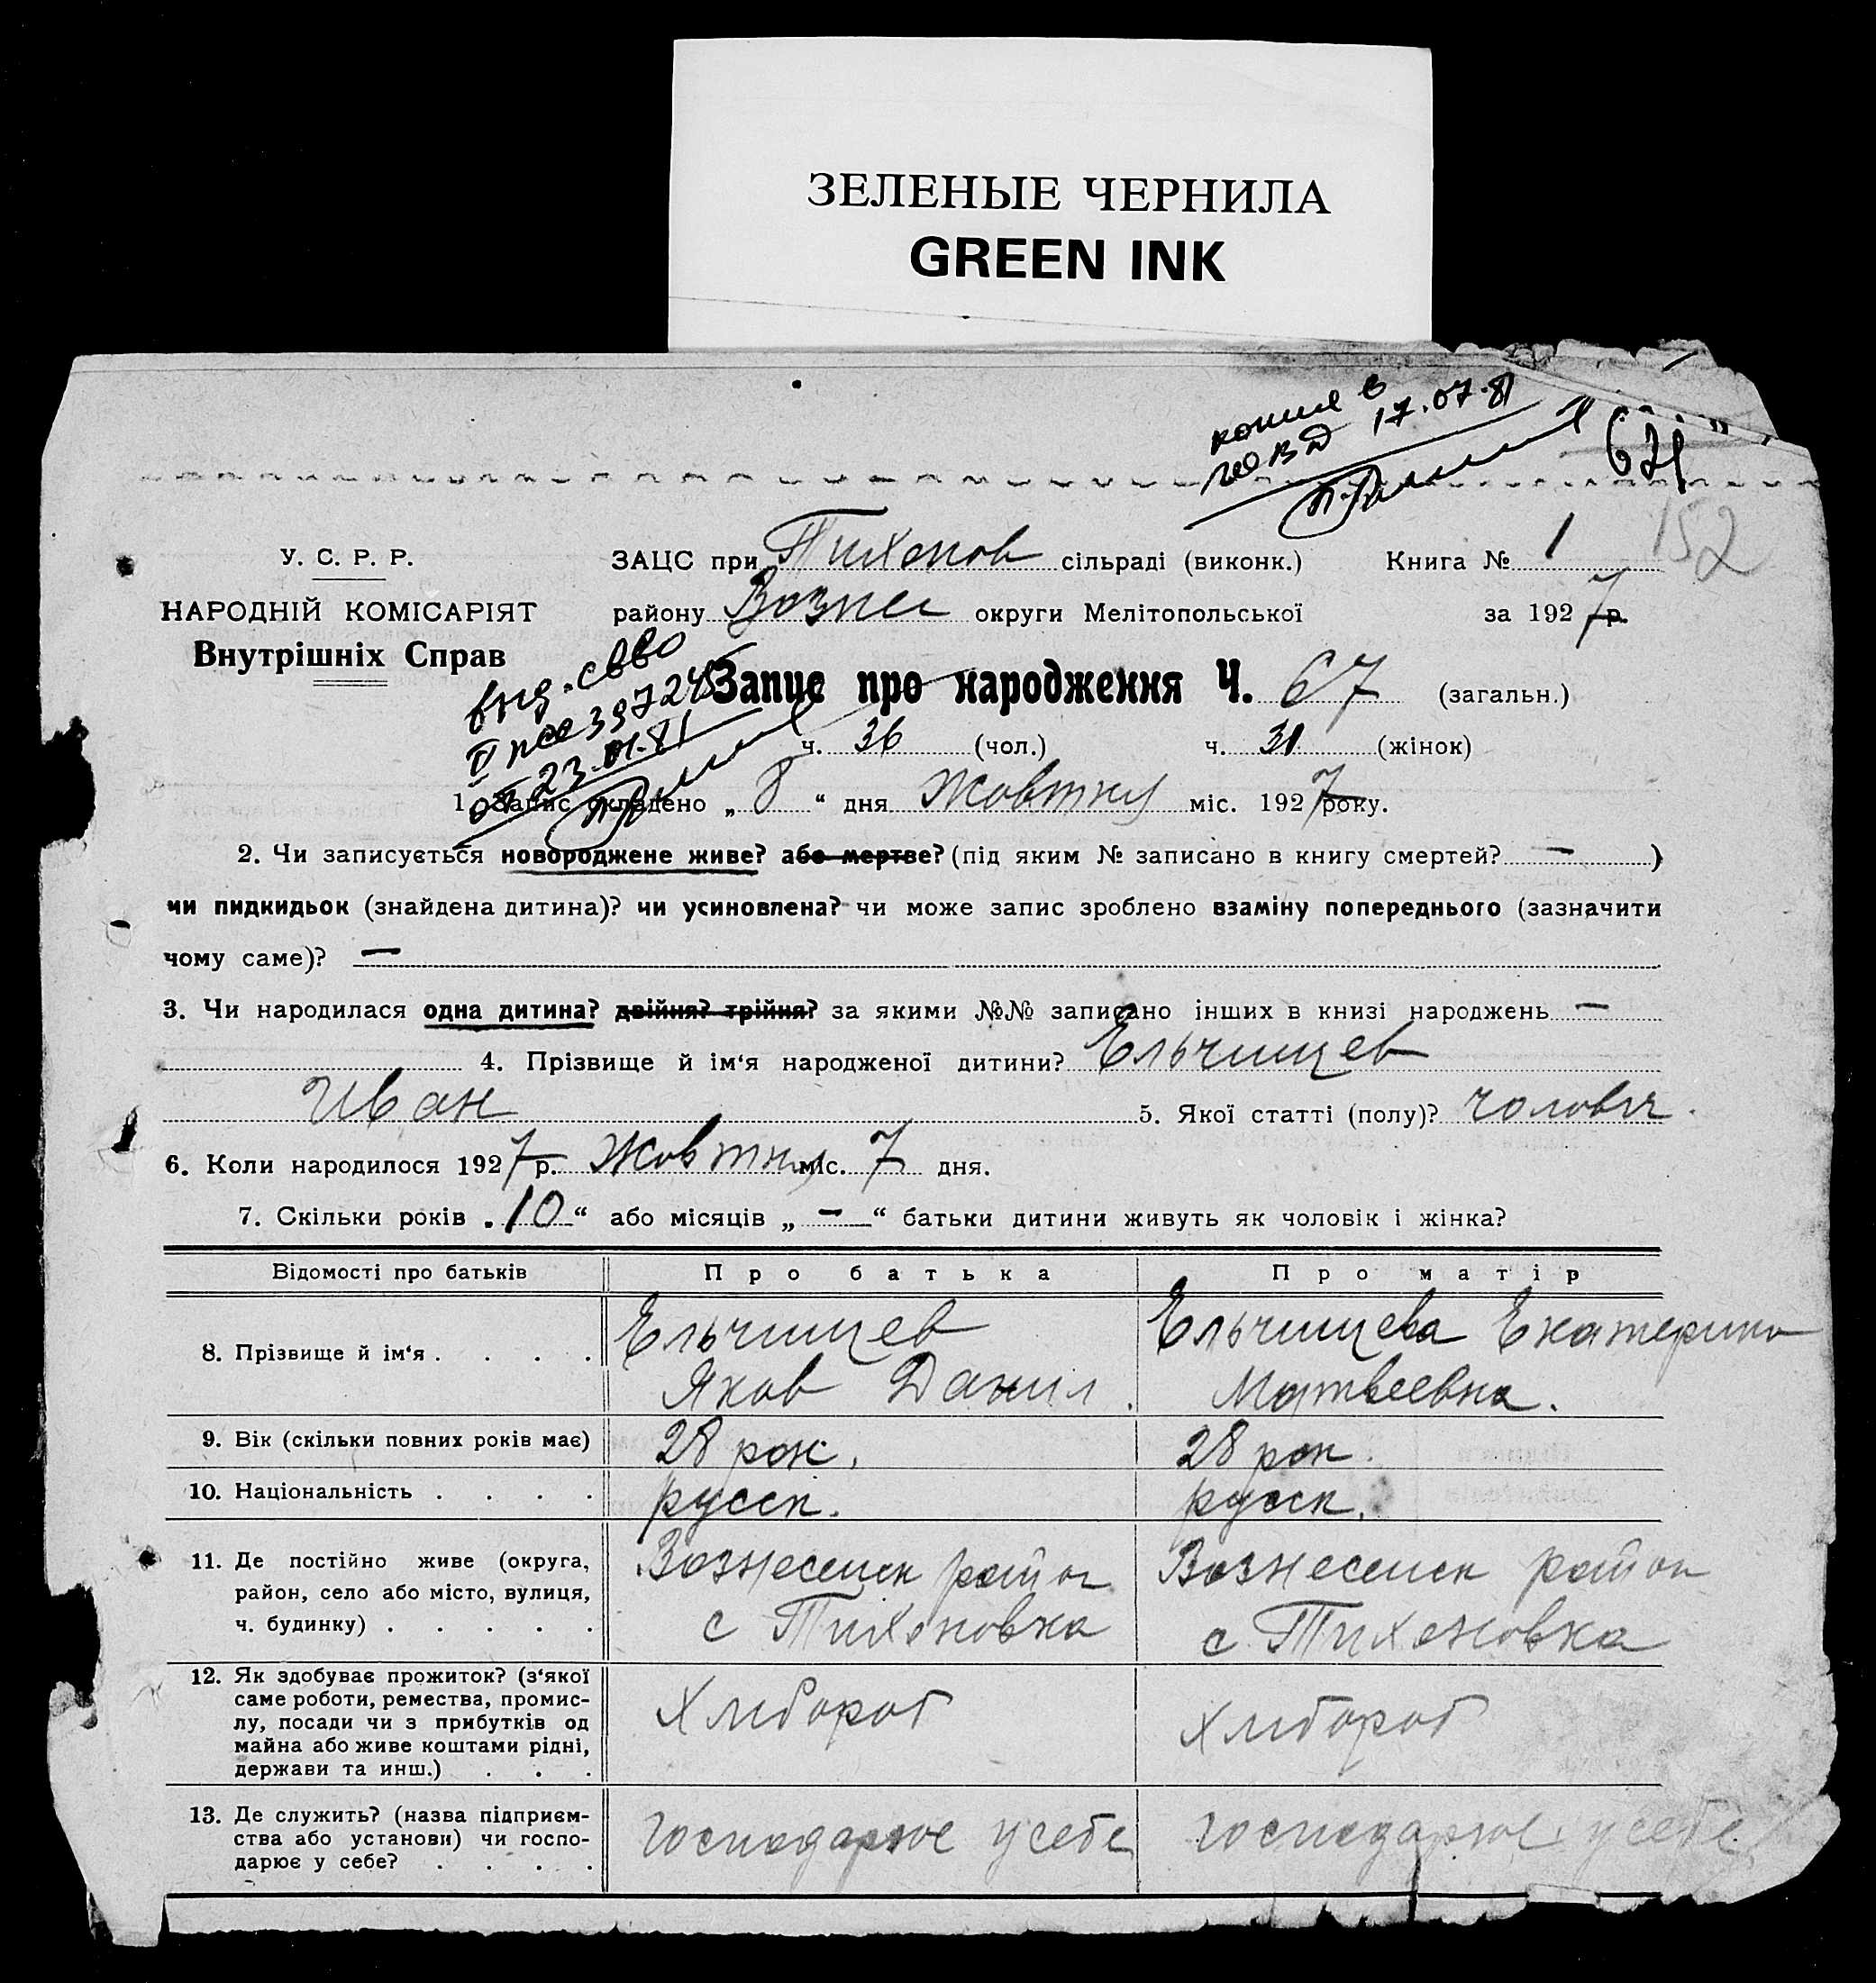 ЗЕЛЕНЫЕ ЧЕРНИЛА
GREEN INK
копия в
17.07.81
152
У. С. Р. Р.
НАРОДНІЙ КОМІСАРІЯТ
Внутрішніх Справ
ЗАЦС при Тихонов сільраді (виконк.) Книга № 1
району Вознес округи Мелітопольської за 1927 р.
Запис про народження Ч. 67 (загальн.)
ч. 36 (чол.) ч. 31 (жінок)
от 23.01.81
1. Запис складено „ 8 “ дня Жовтня міс. 1927 року.
2. Чи записується новороджене живе? або мертве? (під яким № записано в книгу смертей? — )
чи пидкидьок (знайдена дитина)? чи усиновлена? чи може запис зроблено взаміну попереднього (зазначити
чому саме)? —
3. Чи народилася одна дитина? двійня? трійня? за якими №№ записано інших в книзі народжень —
4. Прізвище й ім‘я народженої дитини? Ельчищев
Иван 5. Якої статті (полу)? чолович.
6. Коли народилося 1927 р. Жовтня міс. 7 дня.
7. Скільки років „ 10 “ або місяців „ — “ батьки дитини живуть як чоловік і жінка?
Відомості про батьків Про батька Про матір
8. Прізвище й ім‘я . . . . Ельчищев Яков Данил. Ельчищева Екатерина Матвеевна.
9. Вік (скільки повних років має) 28 рок. 28 рок.
10. Національність . . . . русск. русск.
11. Де постійно живе (округа,
район, село або місто, вулиця,
ч. будинку) . . . . .
Вознесенск район
с Тихоновка
Вознесенск район
с. Тихоновка
12. Як здобуває прожиток? (з‘якої
саме роботи, ремества, промис-
лу, посади чи з прибутків од
майна або живе коштами рідні,
держави та инш.) . . .
Хлибороб
Хлибороб
13. Де служить? (назва підприєм-
ства або установи) чи госпо-
дарює у себе? . . . .
господарює у себе
господарює у себе